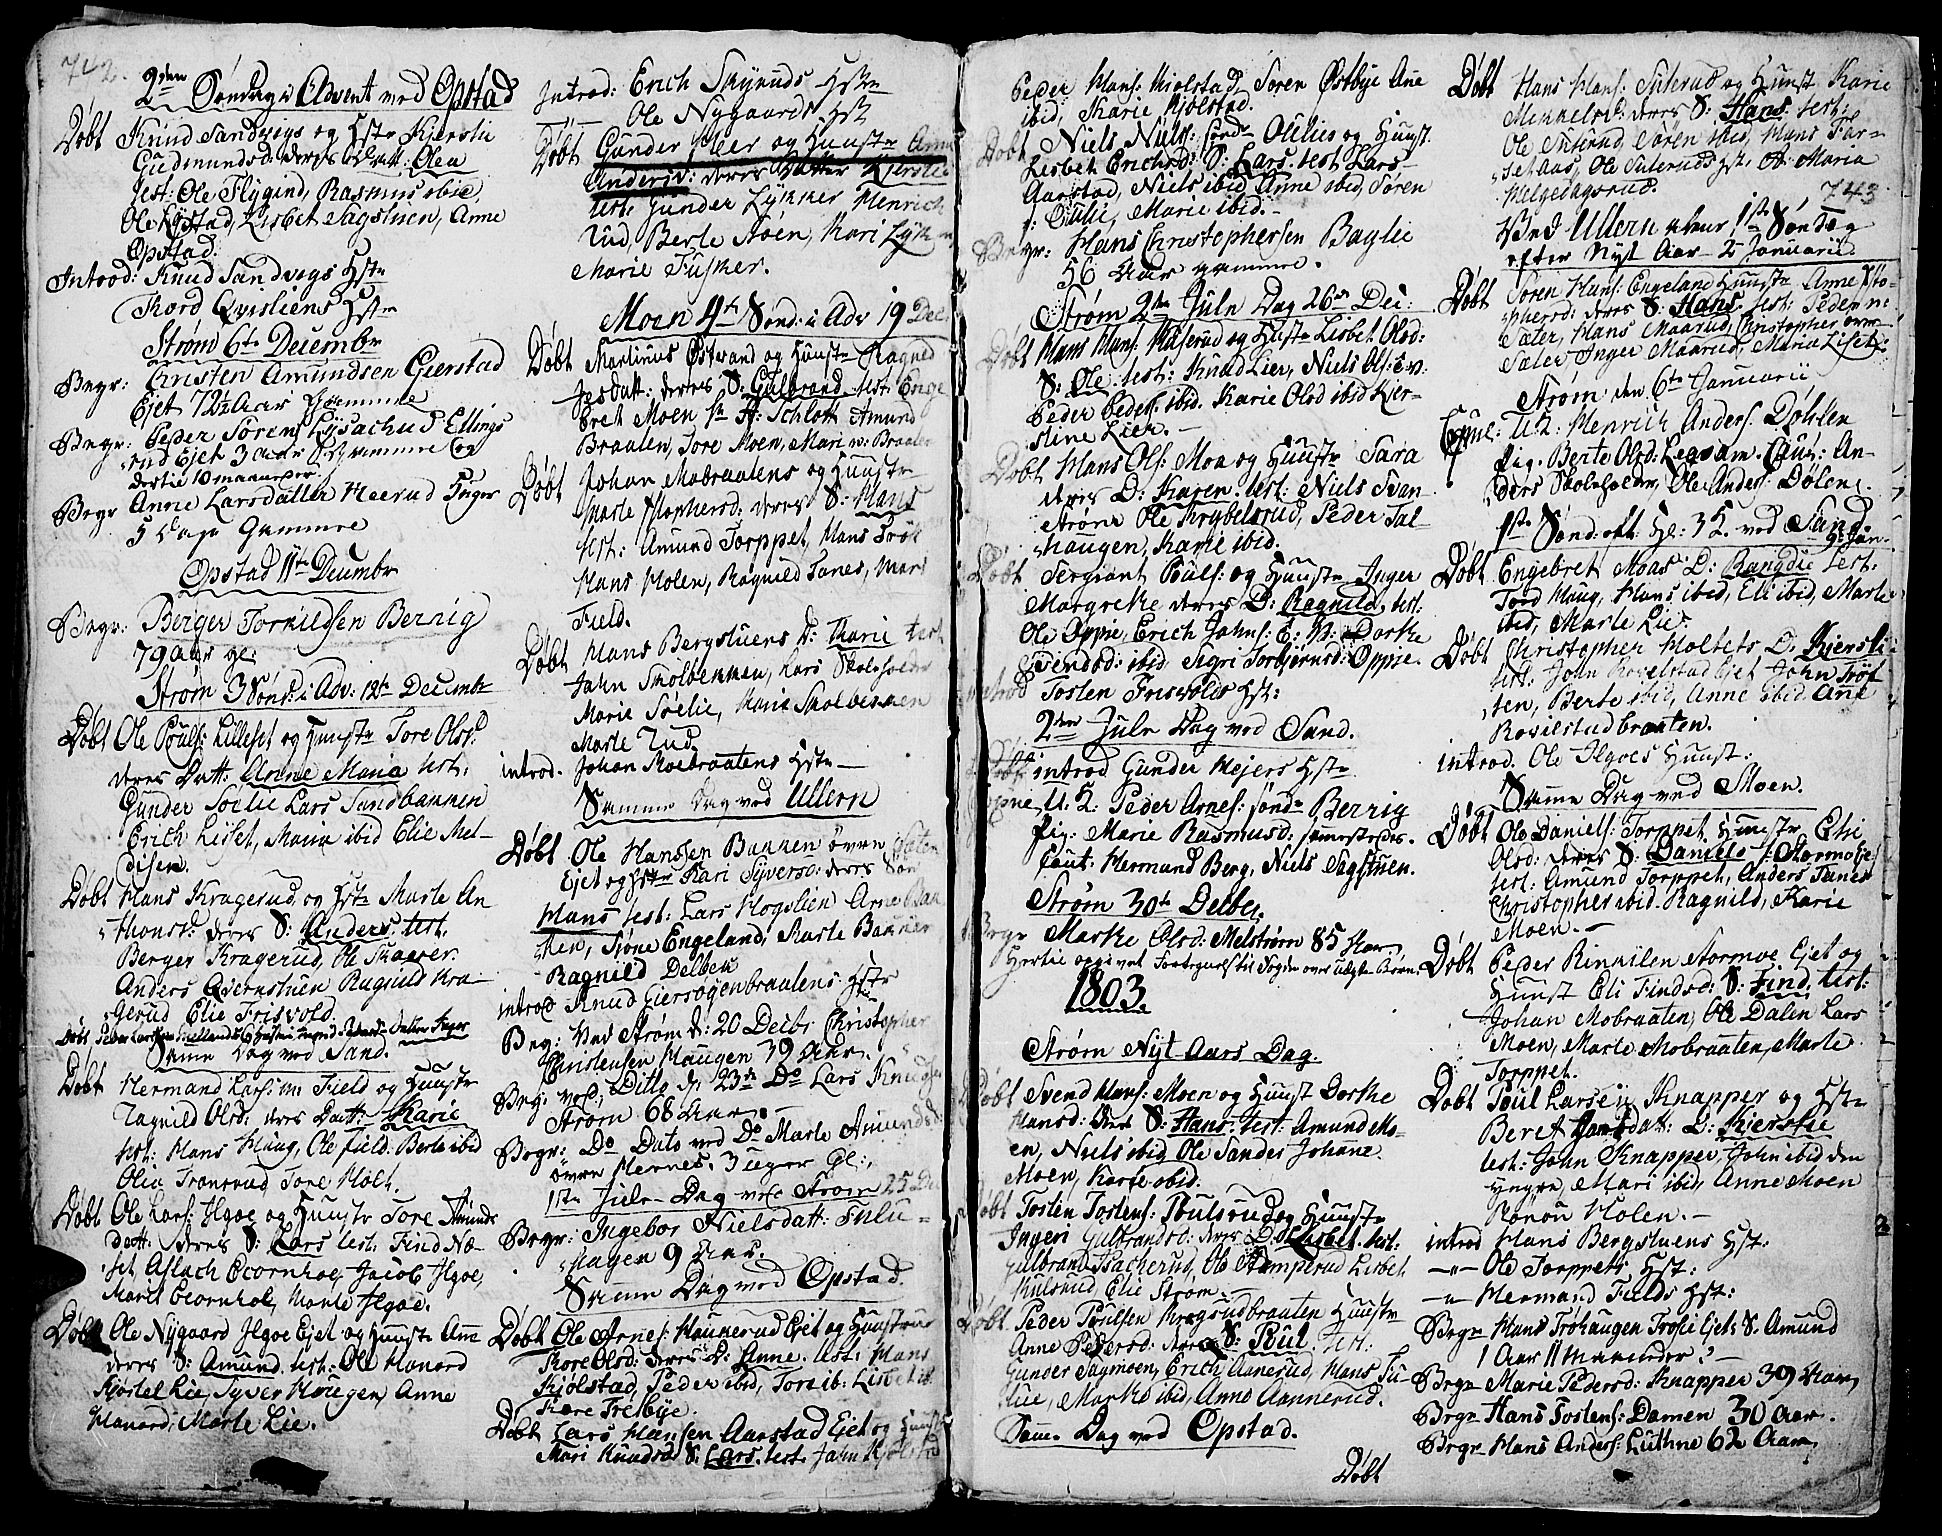 742.
2den Søndag i Advent ved Opstad
Døbt Knud Sandvigs og Hstr Kjerstie
Gudmundsd: deres Datt: Olea
test: Ole Flygind, Rasmus ibid,
Ole Opstad, Lisbet Sagstuen, Anne
Opstad.
Introd: Knud Sandvigs Hstr
Thord Qvisliens Hstr
Strøm 6te Decembr
Begr: Christen Amundsen Gierstad
Ejet 72½ Aar Gammel
Begr: Peder Sørens Ellings
rud Ejet 3 Aar Gammel og
dertil 10 maaneder.
Begr Anne Larsdatter Heerud
5 Dage Gammel
Opstad 11te Decembr
Begr: Berger Torkildsen Berrig
79 Aar gl:
Strøm 3 Sønd: i Adv: 12te Decembr
Døbt Ole Pouls: Lilleset og Hunstr Tore Olsd:
deres Datt: Anne Maria test:
Gunder Sœlie Lars Sandbakken
Erich Liset, Maria ibid Elie Mel-
disen.
Døbt Hans Kragerud og Hstr Marte An
thonsd: deres S: Anders. test.
Berger Kragerud, Ole Skaaer.
Anders Qvernstuen Ragnild Kra-
gerud Elie Frisvold.
Samme Dag ved Sand.
Døbt Hermand Lars: Field og Hunstr
Ragnild Olsd: deres Datt: Karie
test: Hans Haug, Ole field. Berte ibid
Olia Tronsrud Tore Holt.
Døbt Ole Lars: Ilgoe og Hunstr Tore Amunds
datt: deres S: Lars test: Find Næ-
set Aslach Ecornhol, Jacob Ilgoe,
Marit Ecornhol, Marte Ilgoe.
Døbt Ole Nygaard Ilgoe Ejet og Hunstr Anne
deres S: Amund. test: Ole Hanord
Kjøstel Lie, Syver Haugen, Anne
Hanord, Marte Lie.
Introd: Erich Skynuds Hstr
Ole Nygaards Hst
Døbt Gunder Meer og Hunstr Anne
Andersd: deres Datter Kjerstie
test: Gunder Lykker Henrich
Rud, Berte Støen, Kari Lykken
Marie Fusker.
Moen 4te Sønd: i Adv 19 Dec.
Døbt Martinus Østvand og Hunstr Ragnild
Jesdatt: deres S: Gulbrand. test: Enge
bret Moen Sr A: Schlott Amund
Braaten, Tore Moen, Mari v: Braaten
Døbt Johan Mobraatens og Hunstr
Marte Xstophersd: deres S: Hans
test: Amund Torppet, Hans
Hans Holen, Ragnild Tanes, Mari
Field.
Døbt Hans Bergstuens D: Marie test
Jahn Skolbekken, Lars Skoleholder
Marie Sœlie, Marie Skolbekken
Marte Rud.
introd. Johan Moebraatens Hstr —
Samme Dag ved Ullern
Døbt Ole Hanssen Bakken øvre Sæter
Ejet og Hstr Kari Syversd: deres Søn
Hans test: Lars Hogslien Arne Bak
ken, Tjøne Engeland, Marte Bakken
Ragnild Delbek
introd Knud Giersøgenbraatens Hstr
Beg: Ved Strøm d: 20 Decbr Christopher
Christensen Haugen 39 Aar.
Beg: ved Ditto d: 23de Do Lars Knuds
Strøm 68 Aar. —
Begr: Do Dato ved Do Marte Amundsd:
øvre Hernes. 3 uger Gl:
1ste Jule Dag ved Strøm 25 De
Begr: Ingebor Nielsdatt:
hagen 9 Aar.
Samme Dag ved Opstad.
Døbt Ole Arnes: Haunerud Ejet og Hunstrue
Kore Olsd: deres D: Anne. test: Hans
Kjølstad, Peder ibid, Tore ib: Lisbet ib:
Kare Trelbye.
Døbt Lars Hansen Aarstad Ejet og Hunstr
Mari Knudsd S: Lars. test. John Kjølstad
Peder Hans: Kiolstad, Søren Østbye Ane
ibid, Karie Kjolstad.
Døbt Niels Niels: søndr Oulies og Hunst.
Lisbet Erichsd: S: Lars. test Lars
Aarstad, Niels ibid, Anne ibid, Søren
s: Oulie, Marie ibid. -
Begr: Hans Christophersen Baglie
56 Aar gammel.
Strøm 2den Jule Dag 26de Dec:
Døbt Hans Hans: Haserud og Hustr Lisbet Olsd:
S: Ole. test: Knud Lier, Niels Ols: ev:
Peder Peders: ibid. Karie Olsd ibid Kjer-
stine Lier. -
Døbt Hans Ols: Moa og Hunstr Sara
deres D: Karen. test: Niels Svan
strøm Ole Krybelsrud, Peder Tal-
haugen, Karie ibid.
Døbt Sergiant Pouls: og Hunstr Inger
Margrethe deres D: Ragnild. test:
Ole Oppie, Erich Johns: E: P: Dorthe
Svendsd: ibid Sigri Torbjørnsd: Oppie.
introd Tosten Frisvolds Hst:
2den Jule Dag ved Sand.
introd Gunder Mejers Hstr
U. K. Peder Arnes: søndr Berrig
pig: Marie Rasmusd: samestedes.
Caut: Hermand Berg, Niels Sagstuen.
Strøm 30te Decber.
Begr Marthe Olsd: Melstrøm 85 Aar.
1803.
Strøm Nyt Aars Dag.
Døbt Svend Hans: Moen og Hunst Dorthe
Hansd: deres S: Hans. test: Amund Mo-
en, Niels ibid Ole Sander Johanne
Moen, Karte ibid.
Døbt Tosten Tostens: Poulsrud og Hunstr
Ingeri Gulbrandsd: deres D: Lisbet. test:
Gulbrand Isacherud, Ole Stamperud Lisbet
Poulsrud, Elie Strøm.
Døbt Peder Poulsen Kragsrudbraaten Hunstr
Anne Pedersd: deres S: Poul. test:
Gunder Sagmoen, Erich Aanerud, Hans Su-
lue, Marthe ibid, Anne Aannerud.
Samme Dag ved Opstad.
Døbt
Døbt Hans Hans: Suterud og Hunst Karie
Mikkelsd: deres S: Hans. test:
Ole Suterud Søren ibid, Hans Far-
setaas, Ole Suteruds Hst A: Maria
Helgedagsrud.
743.
Ved Ullern allene 1ste Søndag
efter Nyt Aar 2 Januarii
Døbt Søren Hans: Engeland Hunstr Anne Xsto-
phersd: deres S: Hans. test: Peder n:
Sæter, Hans Maarud, Christopher øvre
Sæter Inger Maarud, Maria Liset.
Strøm den 6te Januarii
U. K: Henrich Anders: Dølen
pig: Berte Olsd: Leeram. Caut: An-
ders Skoleholder, Ole Anders: Dølen.
1ste Sønd: eft: H: 3 K. ved Sand. 9de Jan.
Døbt Engebret Moas D: Rangdie test:
Tord Haug, Hans ibid, Eli ibid, Marte
ibid, Marte Lie.
Døbt Christopher Holtets D: Kjersti
test: John Rosilstad Ejet John
sten, Berte ibid, Anne ibid Anne
Rosilstadbraaten.
introd. Ole Ilgoes Hunst:
Samme Dag ved Moen.
Døbt Ole Daniels: Torppet, Hunstr Elie
Olsd: deres S: Daniels Stormo Ejet
test: Amund Torppet, Anders Tanes
Christopher ibid. Ragnild, Karie
Moen. -
Døbt Peder Rinkilen Stormoe Ejet og
Hunst Eli Findsd: S: Find, test:
Johan Mobraaten, Ole Dalen Lars
Moen, Marte Mobraaten, Marte
Torppet.
Døbt Poul Larsen Knapper og Hstr
Beret datt: D: Kjerstie
test: John Knapper, John ibid den
yngre, Mari ibid, Anne Moen
Rønøu Holen. -
introd Hans Bergstuens Hst:
—"— Ole Torppets Hst:
—"— Hermand Fields Hst:
Begr Hans Trøhaugen Trøsie Ejets S. Amund
1 Aar 11 Maaneder. -
Begr Marie Pedersd: Knapper 39 Aar,
Begr Hans Tostens: Damen 30 Aar.
Begr Hans Anders: Luthne 62 Aar,